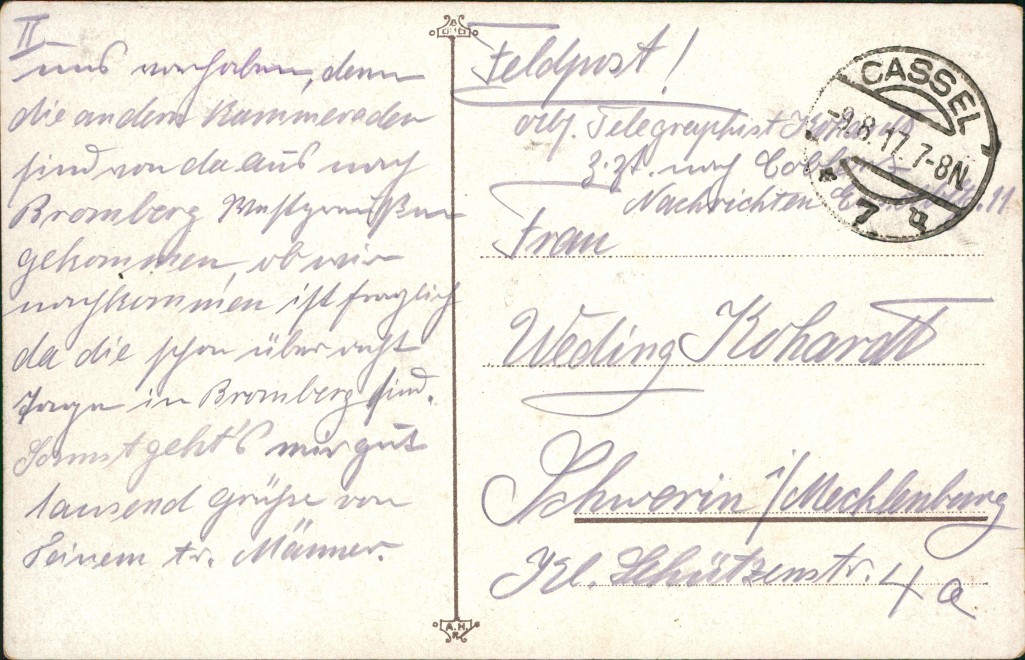 II
uns vorhaben, denn
die andern Kammeraden
sind von da aus nach
Bromberg Westpreußen
gekommen, ob wir
nachkommen ist fraglich
da die schon über acht
Tage in Bromberg sind.
Sonst geht's mir gut
tausend Grüße von
Deinem tr. Männer.
Feldpost!
Telegraphist
z. Zt. nach
Nachrichten
CASSEL
-9.8.17. 7-8N.
* 7 q
Frau
Weding Kohardt
Schwerin i/Mecklenburg
Kl. Schützenstr. 4 a
A.H.